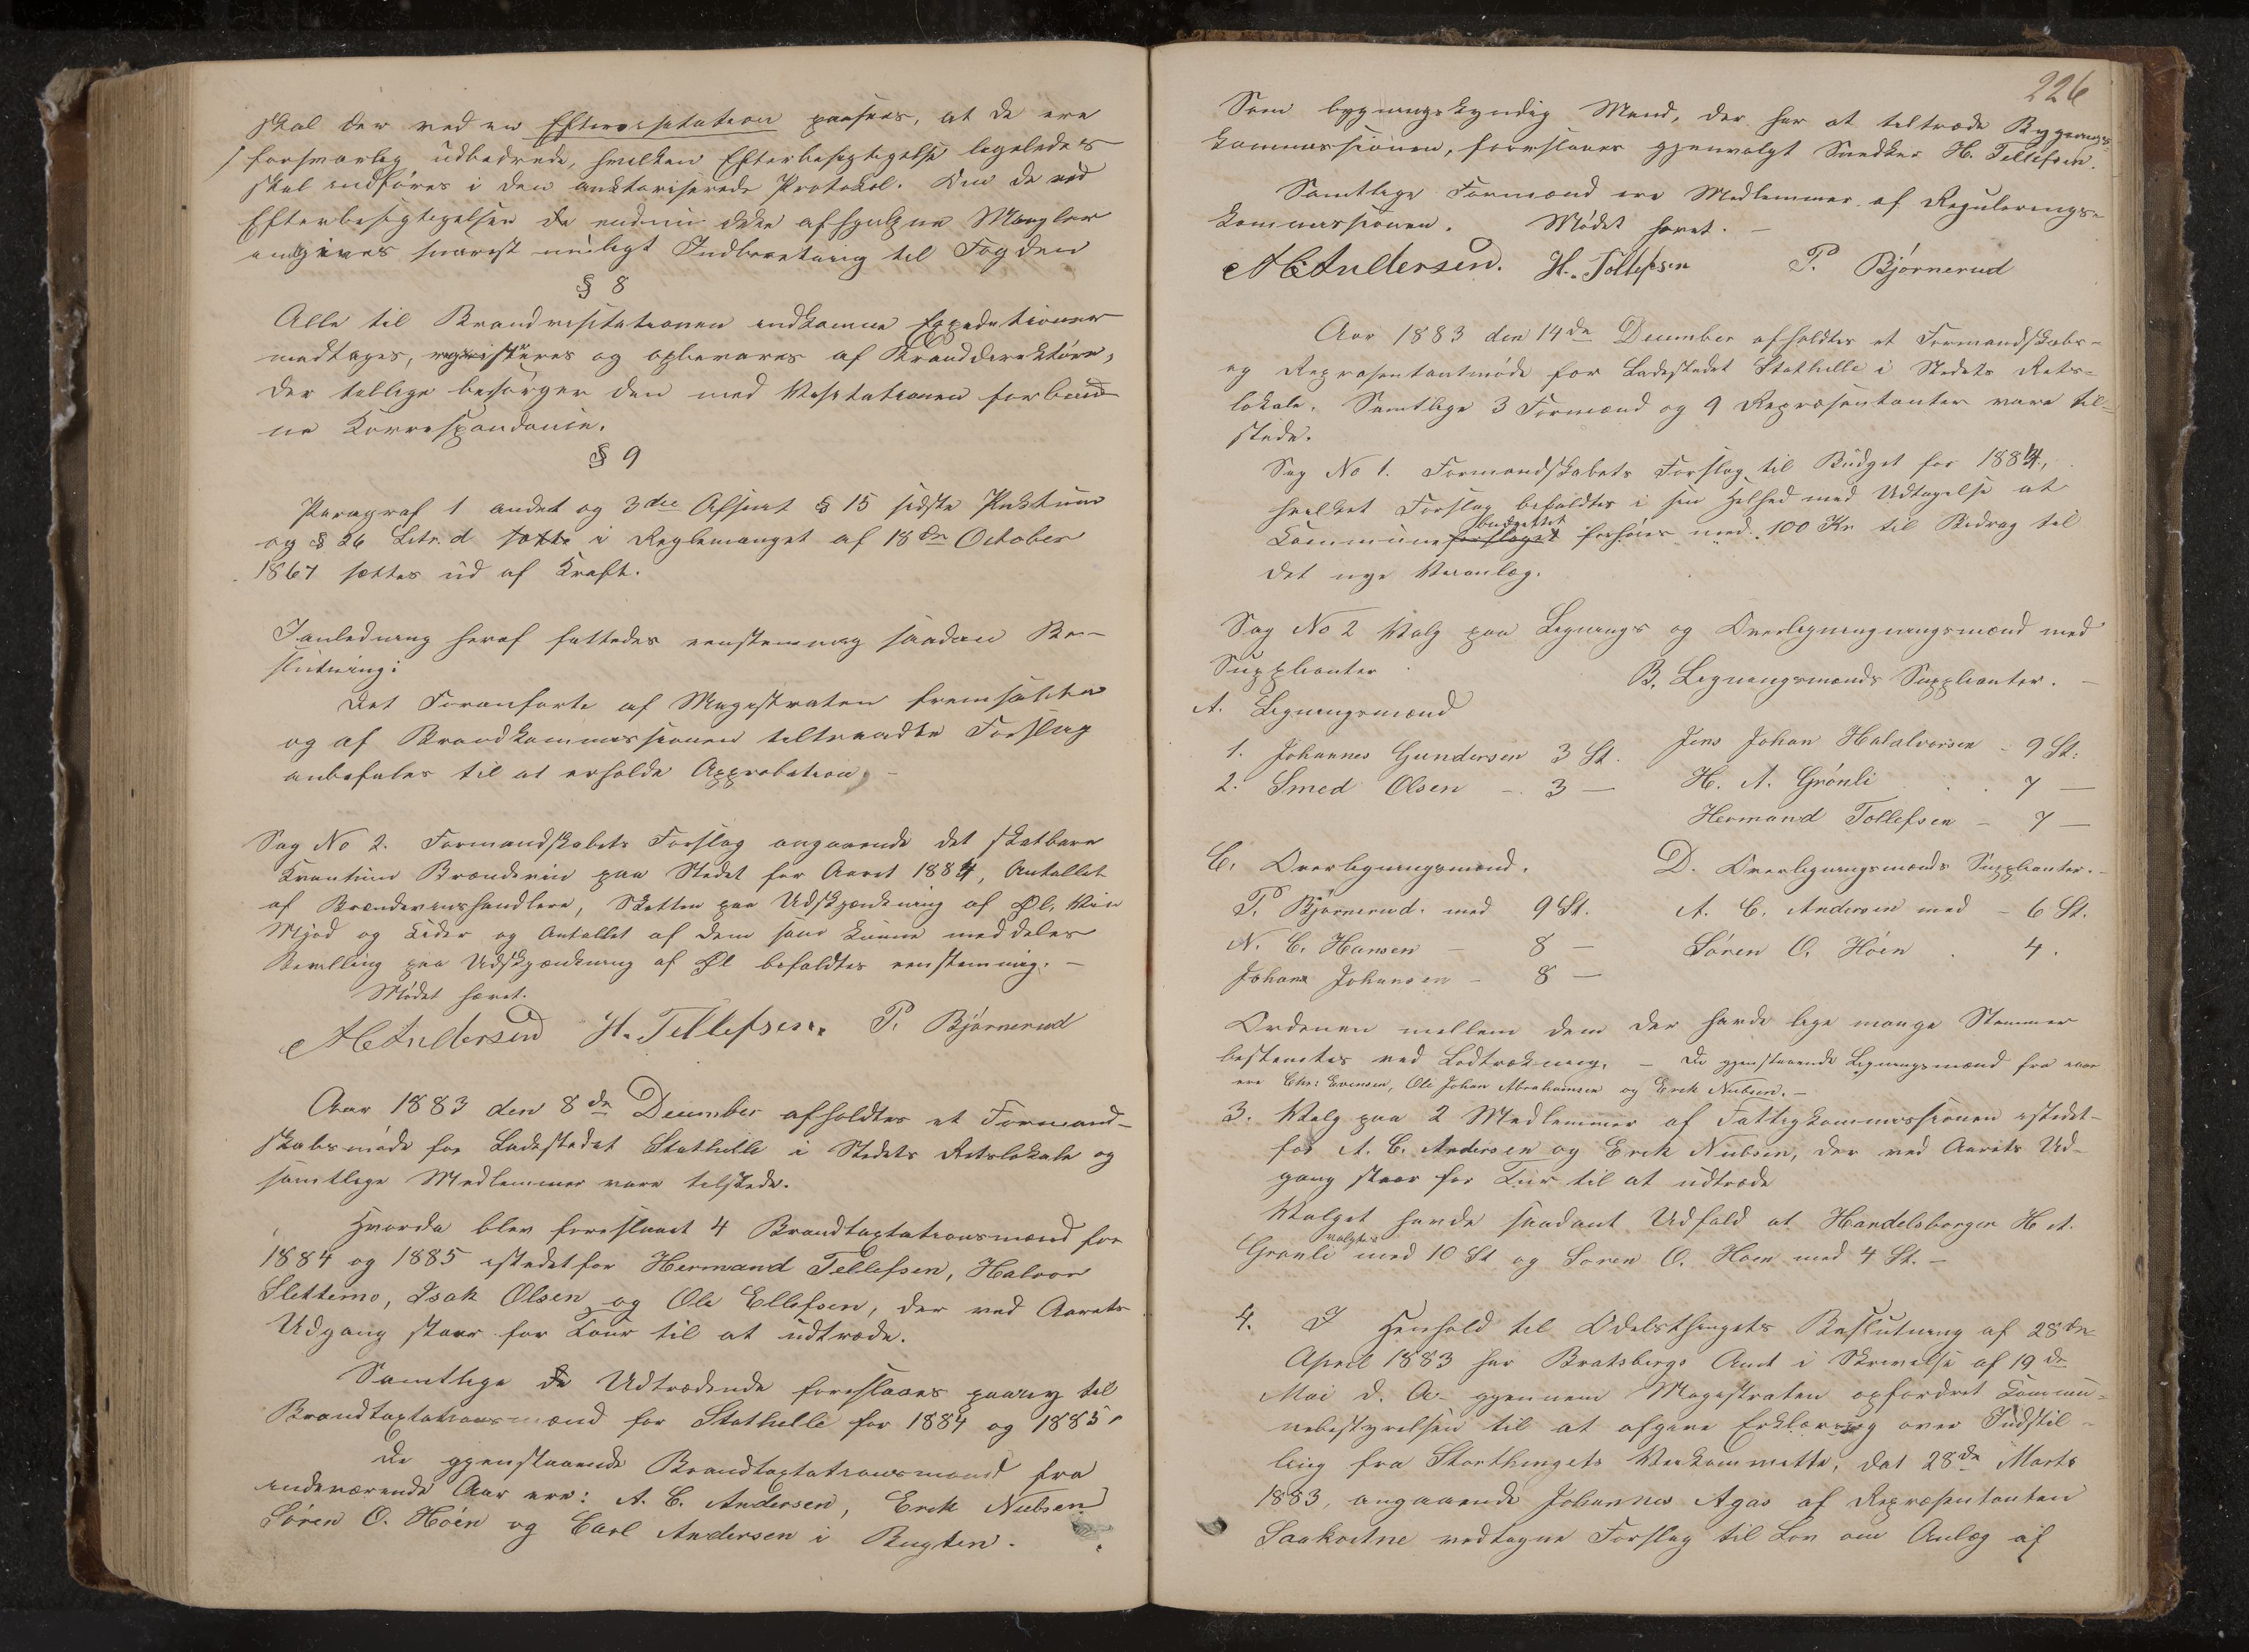 skal der ved en Eftervisitation paasees, at de ere
forsvarlig udbedrede, hvilken Efterbesigtigelse ligeledes
skal indføres i den auktoriserede Protokol. Om de ved
Efterbesigtigelsen da endnu ikke afhjulpne Mangler
indgives snarest muligt Indberetning til Fogden
§ 8
Alle til Brandvisitationen indkomne Expeditioner
modtages, registreres og opbevares af Branddirektøren,
der tillige besørger den med Visitationen forbund
ne Korrespondance.
§ 9
Paragraf 1 andet og 3die Afsnit § 15 sidste Puktum
og § 26 Litr. d i Reglementet af 18de October
1867 sættes ud af Kraft.
I anledning heraf fattedes eenstemmig saadan Be-
slutning:
Det Foranførte af Magistraten fremsatte
og af Brandkommissionen tiltraadte Forslag
anbefales til at erholde Approbation. -
Sag No 2. Formandskabets Forslag angaaende det skatbare
Kvantum Brændeviin paa Stedet for Aaret 1884, Antallet
af Brændevinshandlere, Skatten paa Udskjænkning af Øl, Vin
Mjød og Cider og Antallet af dem som kunne meddeles
Bevilling paa Udskjænkning af Øl befaldtes eenstemmig. -
Mødet hævet.
A C Andersen H. Tellefsen. P. Bjørnerud
Aar 1883 den 8de December afholdtes et Formand-
skabsmøde for Ladestedet Stathelle i Stedets Retslokale og
samtlige Medlemmer vare tilstede.
Hvorda blev foreslaaet 4 Brandtaxtationsmænd for
1884 og 1885 istedetfor Hermand Tellefsen, Halvor
Slettemo, Isak Olsen og Ole Ellefsen, der ved Aarets
Udgang staar for Tour til at udtræde.
Samtlige de Udtrædende foreslaaes paany til
Brandtaxtationsmænd for Stathelle for 1884 og 1885.
De gjenstaaende Brandtaxtationsmænd fra
indeværende Aar ere: A. C. Andersen, Erik Nielsen
Søren O. Høen og Carl Andersen i Bugten.
226
Som bygningskyndig Mand, der har at tiltræde Bygnings-
kommissionen, foreslaaes gjenvalgt Snedker H. Tellefsen.
Samtlige Formænd ere Medlemmer af Regulerings-
kommissionen. Mødet hævet. -
A C Andersen. H. Tollefsen P. Bjørnerud
Aar 1883 den 14de December afholdtes et Formandskabs-
og Repræsentantmøde for Ladestedet Stathelle i Stedets Rets-
lokale. Samtlige 3 Formænd og 9 Repræsentanter vare til-
stede.
Sag No 1. Formandskabets Forslag til Budget for 1884,
hvilket Forslag befaldtes i sin Helhed med Udtagelse at
Kommune budgettet forhøies med 100 Kr til Bidrag til
det nye Veianlæg.
Sag No 2 Valg paa Lignings og Overligningningsmænd med
Supplianter
B. Ligningsmænds Supplianter. -
A. Ligningsmænd
1. Johannes Gundersen 3 St. Jens Johan Halalvorsen - 9 St:
2. Smed Olsen - 3 - H. A. Grønli . . 7 -
Hermand Tollefsen - 7 -
C. Overligningsmænd. D. Overligningsmænds Supplianter. -
P. Bjørnerud. med 9 St. A. C. Andersen med - 6 St.
N. C. Hansen - 8 - Søren O. Høen . 4.
Johan Johansen - 8 -
Ordenen mellem dem der havde lige mange Stemmer
bestemtes ved Lodtrækning. - De gjenstaaende Ligningsmænd fra
ere Chr: Evensen, Ole Johan Abrahamsen og Erik Nielsen. -
3. Valg paa 2 Medlemmer af Fattigkommissionen istedet-
for A. C. Andersen og Erik Nielsen, der ved Aarets Ud-
gang staar for Tur til at udtræde
Valget havde saadant Udfald at Handelsborger H A.
Grønli valgtes med 10 St og Søren O. Høen med 4 St. -
4. I Henhold til Odelsthingets Beslutning af 28de
April 1883 har Bratsbergs Amt i Skrivelse af 19de
Mai d. A. gjennem Magistraten opfordret Kommu-
nebestyrelsen til at afgive Erklæring over Indstil-
ling fra Storthingets Veikommitte, dat 28de Marts
1883, angaaende Johannes Agas af Repræsentanten
Saakvitne vedtagne Forslag til Lov om Anlæg af